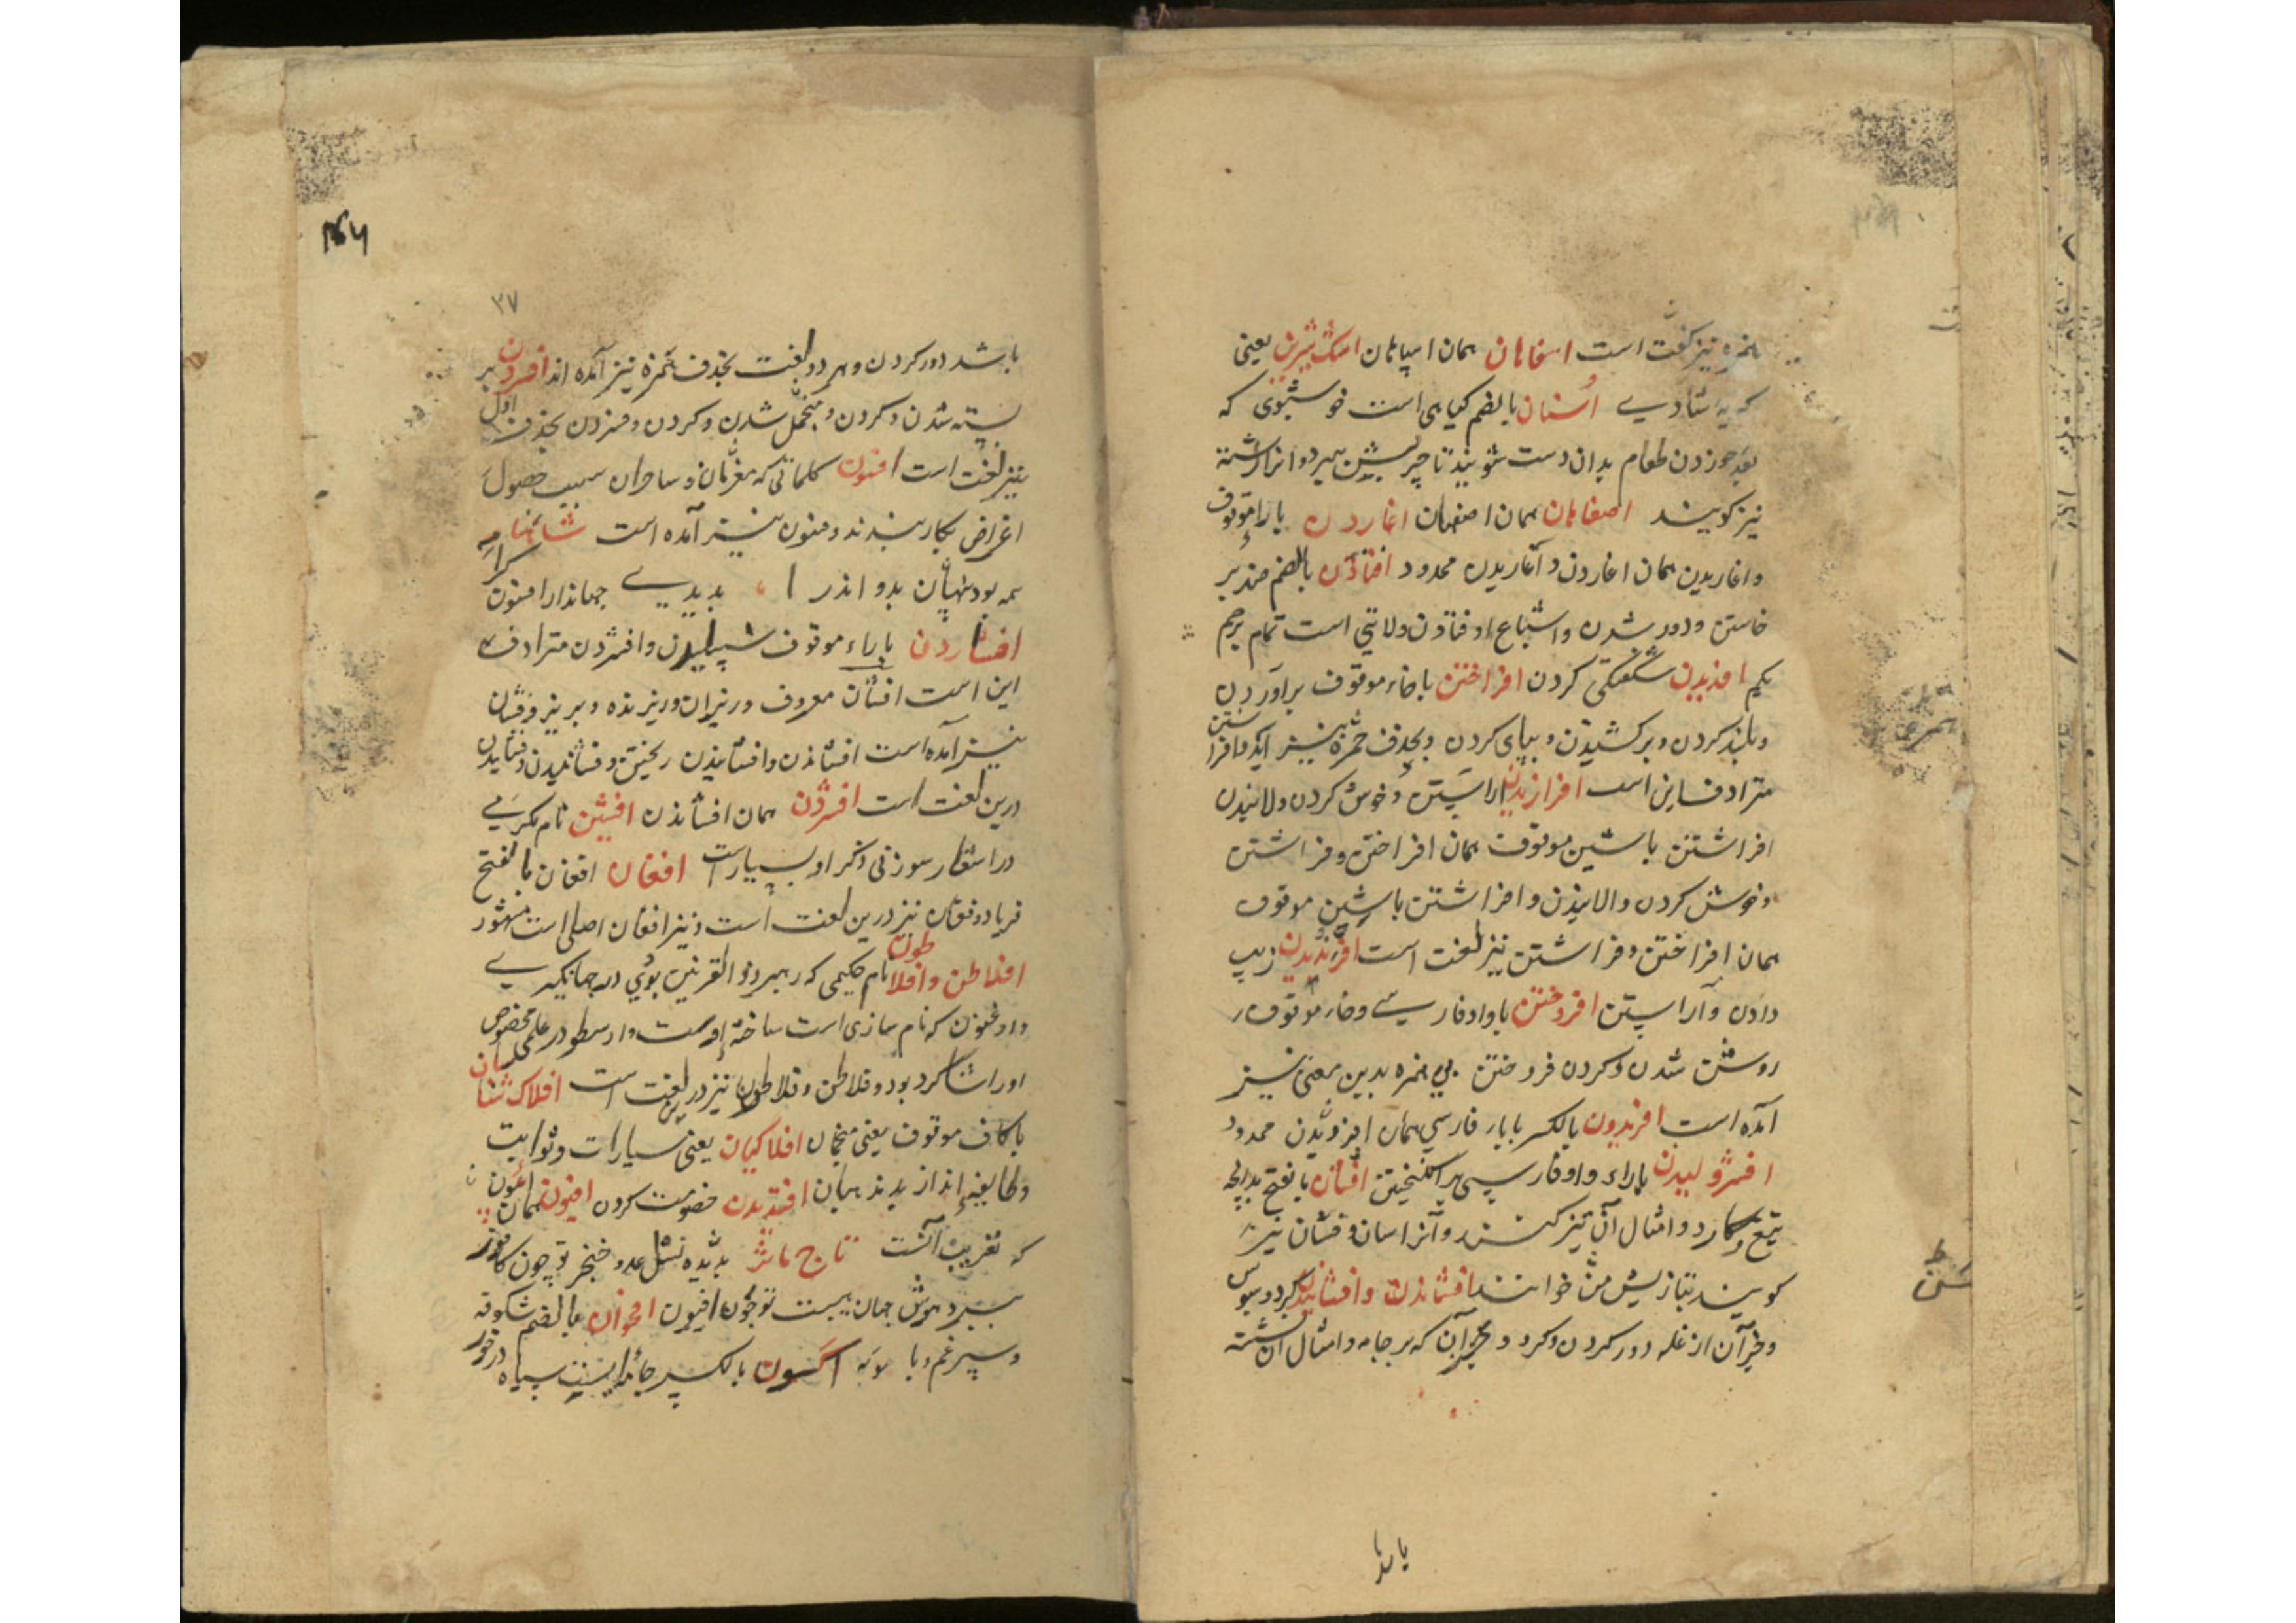 همزه نیز لغت است اسفاهان همان اسپاهان اشک شیرین یعنی
که به شادی اُشنان بالضم گیاهی است خوشبوی که
بعد خوردن طعام بدان دست شویند تا چربش ببرد و انرا اشنه
نیز گویند اصفاهان همان اصفهان اغاردن با راء موقوف
و اغاریدن همان اغاردن و آغاریدن ممدود افتادن بالضم ضد بر
خاستن و دور شدن و اشباع اوفتادن ولایتی است تمام
یکم افدیدن شگفتگی کردن افراختن با خاء موقوف براوردن
و بلند کردن و برکشیدن و بپای کردن و بحذف همزه نیز اید و افراشتن
مترادف این است افرازیدن اراستن و خوش کردن ولانیدن
افراشتن با شین موقوف همان افراختن و فراشتن
و خوش کردن و الانیدن و افراشتن با شین موقوف
همان افراختن و فراشتن نیز لغت است افرندیدن زیب
دادن و آراستن افروختن با واو فارسی و خاء موقوف
روشن شدن و کردن فروختن بی همزه بدین معنی نیز
آمده است افریدون بالکسر با یاء فارسی همان ممدود
افژولیدن با راء و واو فارسی بر انگیختن افسان با فتح بدانچه
تیغ و کارد و امثال آن تیز کنند و آنرا سان و فسان نیز
گویند بتازیش مسن خوانند افشاندن و افشانیدن گرد و سبوس
و جز آن از غله دور کردن و گرد و جز آن که بر جامه و امثال آن نشسته
یارد
۳۷
باشد دور کردن و هر دو لغت بحذف همزه نیز آمده اند افسردن بر
بسته شدن و کردن و منجمد شدن و کردن و فسردن بحذف اول
نیز لغت است افسون کلماتی که معزمان و ساحران سبب حصول
اغراض بکار بندند و فسون نیز آمده است شاهنامه
همه بود پنهان بدو اندرا بدیدی جهاندار افسون گرا
افشاردن با راء موقوف سپیلیدن و افشردن مترادف
این است افشان معروف و ریزان و ریزنده و بریز و فشان
نیز آمده است افشاندن و افشانیدن ریختن و فشاندن و فشانیدن
درین لغت است افشردن همان افشاندن افشین نام کریمی
در اشعار سوزنی ذکر او بسیارست افغان افغان بالفتح
فریاد و فغان نیز درین لغت است و نیز افغان اصلی است مشهور
افلاطن و افلاطون نام حکیمی که رهبر ذو القرنین بودی در جهانگیری
و ارغنون که نام سازی است ساخته اوست و ارسطو در علمی مخصوص
او را شاگرد بود و فلاطن و فلاطون نیز درین لغت است افلاک شناسان
با کاف موقوف یعنی منجمان افلاکیان یعنی سیارات و ثوابت
همان افندیدن خصومت کردن افیون همان
که تعریب آنست تاج ماثر بدیده شکل عدو خنجر تو چون کافور
ببرد هوش جهان هیبت تو چون افیون اقحوان بالضم شکوفه
و سپرغم و بابونه اکسون بالکسر جامه ایست سیاه